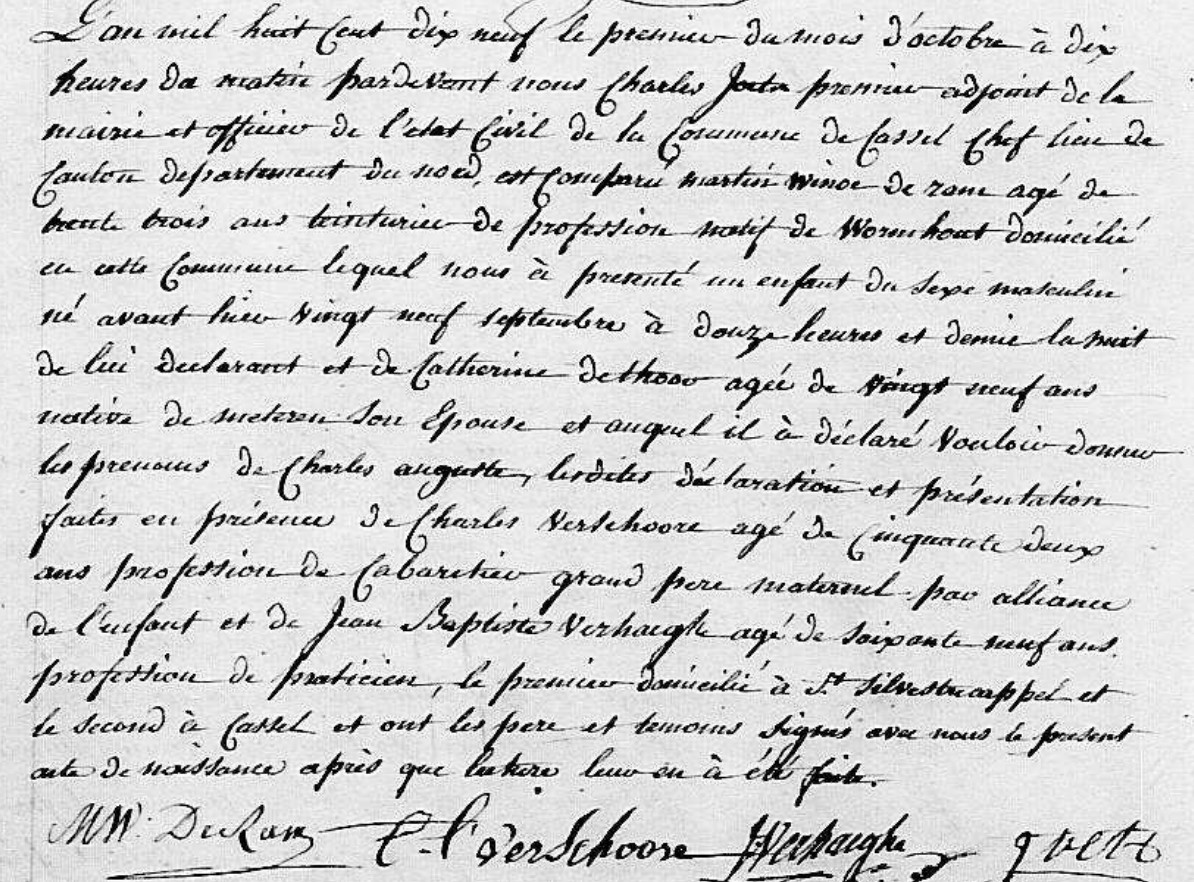 L'an mil huit Cent dix neuf le premier du mois d'octobre à dix
heures du matin pardevant nous Charles premier adjoint de la
mairie et officier de l'état Civil de la Commune de Cassel Chef lieu de
Canton departement du nord, est Comparu martin winoc de ram agé de
trente trois ans teinturier de profession natif de Wormhout domicilié
en cette Commune lequel nous à presenté un enfant du sexe masculin
né avant hier vingt neuf septembre à douze heures et demie la nuit
de lui declarant et de Catherine dethoor agée de vingt neuf ans
native de meteren son Epouse et auquel il à déclaré Vouloir donner
les prenoms de Charles auguste, lesdites déclaration et présentation
faites en présence de Charles Verschoore agé de Cinquante deux
ans profession de Cabaretier grand pere maternel par alliance
de l'enfant et de Jean Baptiste Verhaeghe agé de soixante neuf ans.
profession de praticien, le premier domicilié à St. Silvestrecappel et
le second à Cassel et ont les pere et temoins signés avec nous le present
acte de naissance après que lecture leur en à été faite.
MW. DeRam C. L. Verschoore JVerhaeghe